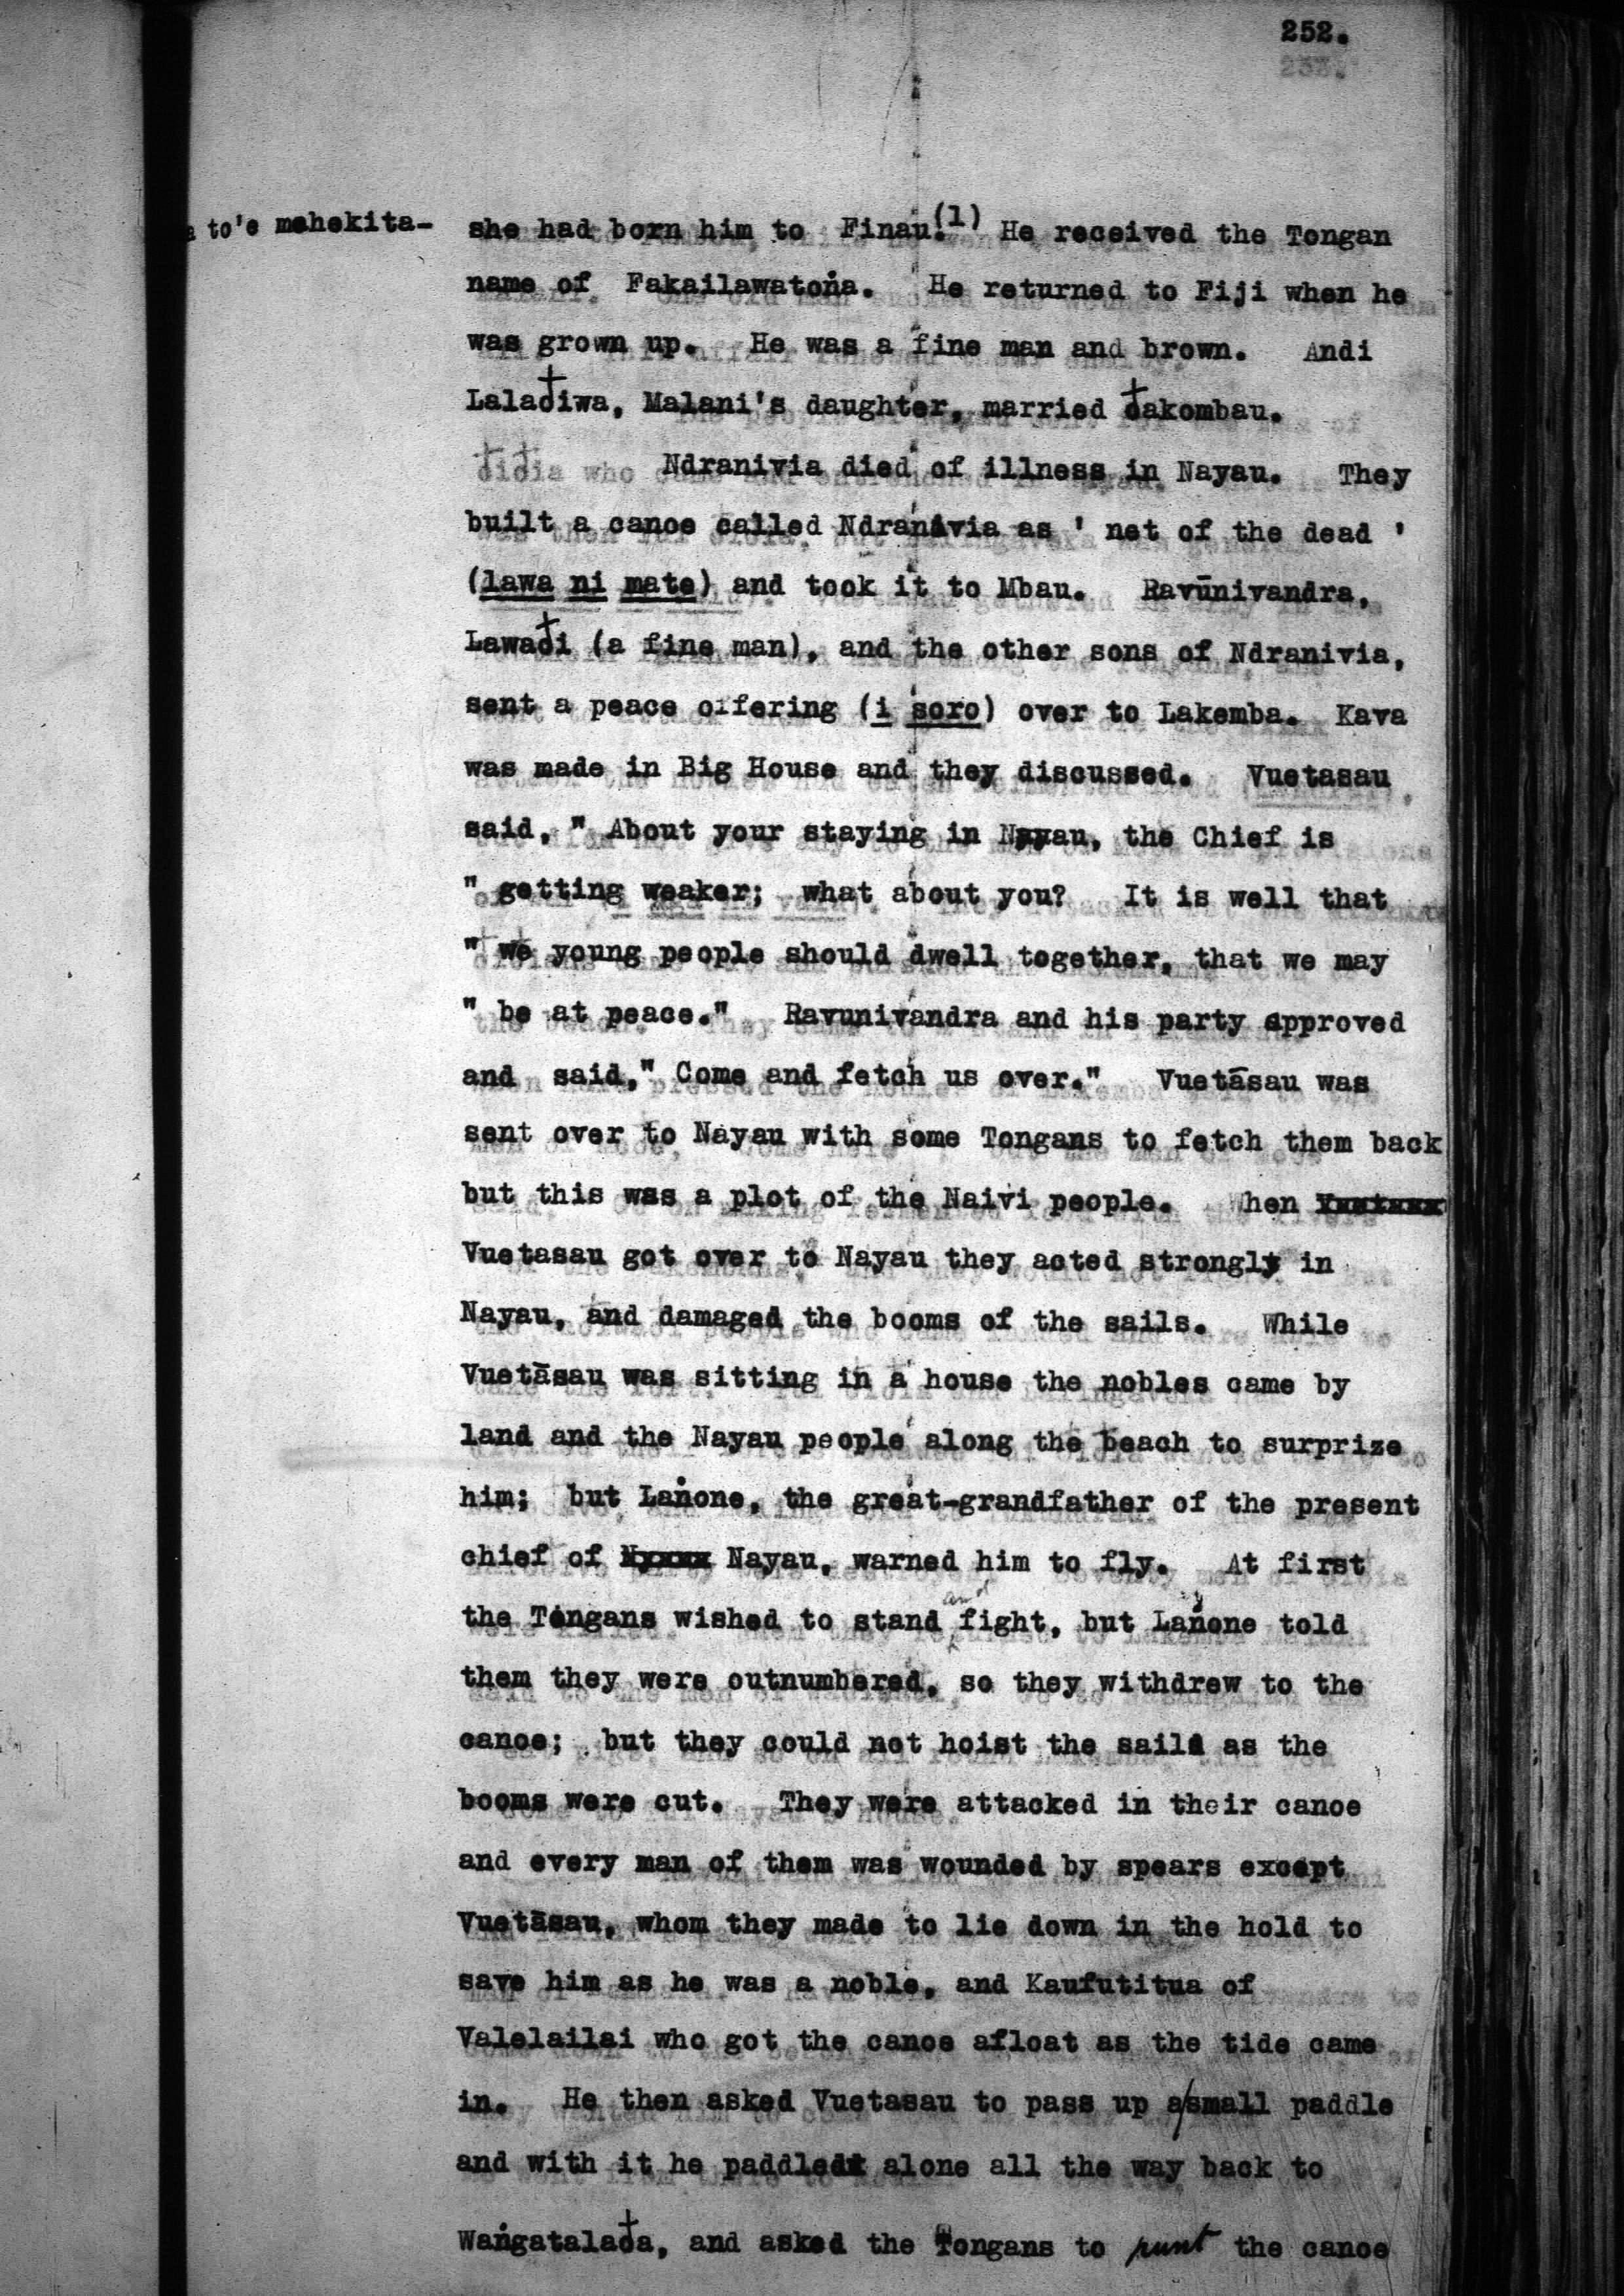 252.
to'e mehekita-
she had born him to Finau.(1) He received the Tongan
name of Fakailawatoṅa. He returned to Fiji when he
was grown up. He was a fine man and brown. Andi
Lalađiwa, Malani's daughter, married đakombau.
Ndranivia died of illness in Nayau. They
built a canoe called Ndranivia as ' net of the dead '
(lawa ni mate) and took it to Mbau. Ravūnivandra,
Lawađi (a fine man), and the other sons of Ndranivia,
sent a peace offering (i soro) over to Lakemba. Kava
was made in Big House and they discussed. Vuetasau
said, " About your staying in Nayau, the Chief is
" getting weaker; what about you? It is well that
" we young people should dwell together, that we may
" be at peace." Ravunivandra and his party approved
and said," Come and fetch us over." Vuetāsau was
sent over to Nayau with some Tongans to fetch them back
but this was a plot of the Naivi people. When
Vuetasau got over to Nayau they acted strongly in
Nayau, and damaged the booms of the sails. While
Vuetāsau was sitting in a house the nobles came by
land and the Nayau people along the beach to surprize
him; but Laṅone, the great-grandfather of the present
chief of Nayau, warned him to fly. At first
the Tongans wished to stand and fight, but Laṅone told
them they were outnumbered, so they withdrew to the
canoe; but they could not hoist the sails as the
booms were cut. They were attacked in their canoe
and every man of them was wounded by spears except
Vuetāsau, whom they made to lie down in the hold to
save him as he was a noble, and Kaufutitua of
Valelailai who got the canoe afloat as the tide came
in. He then asked Vuetasau to pass up a/small paddle
and with it he paddled alone all the way back to
Waṅgatalađa, and asked the Tongans to punt the canoe